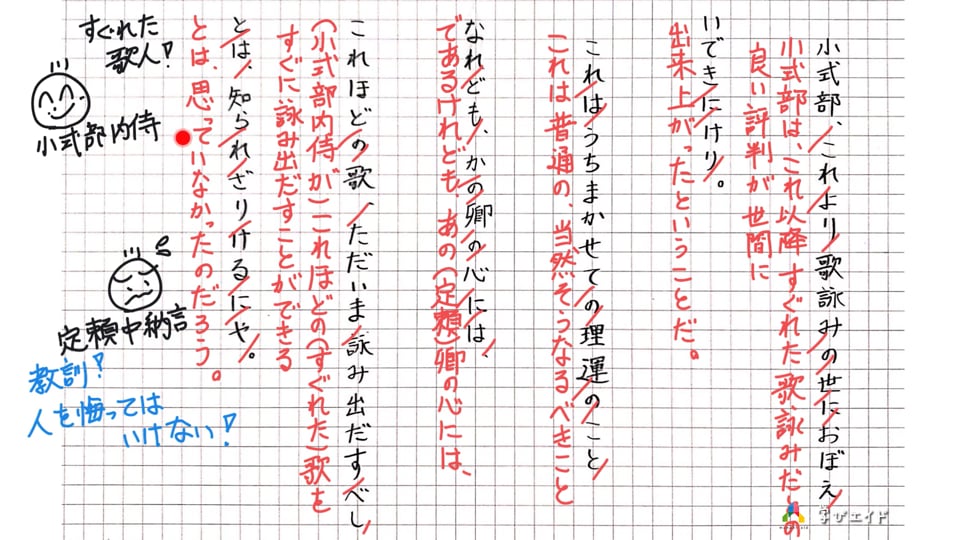 小式部、これより歌詠みの世におぼえ
小式部は、これ以降すぐれた歌詠みだとの
良い評判が世間に
いできにけり。
出来上がったということだ。
これはうちまかせての理運のこと
これは普通の、当然そうなるべきこと
なれども、かの卿の心には、
であるけれども、あの(定頼)卿の心には、
これほどの歌、ただいま詠み出だすべし
(小式部内侍が)これほどの(すぐれた)歌を
すぐに詠み出だすことができる
とは、知られざりけるにや。
とは、思っていなかったのだろう。
すぐれた
歌人!
小式部内侍
定頼中納言
教訓!
人を悔っては
いけない!
学びエイド